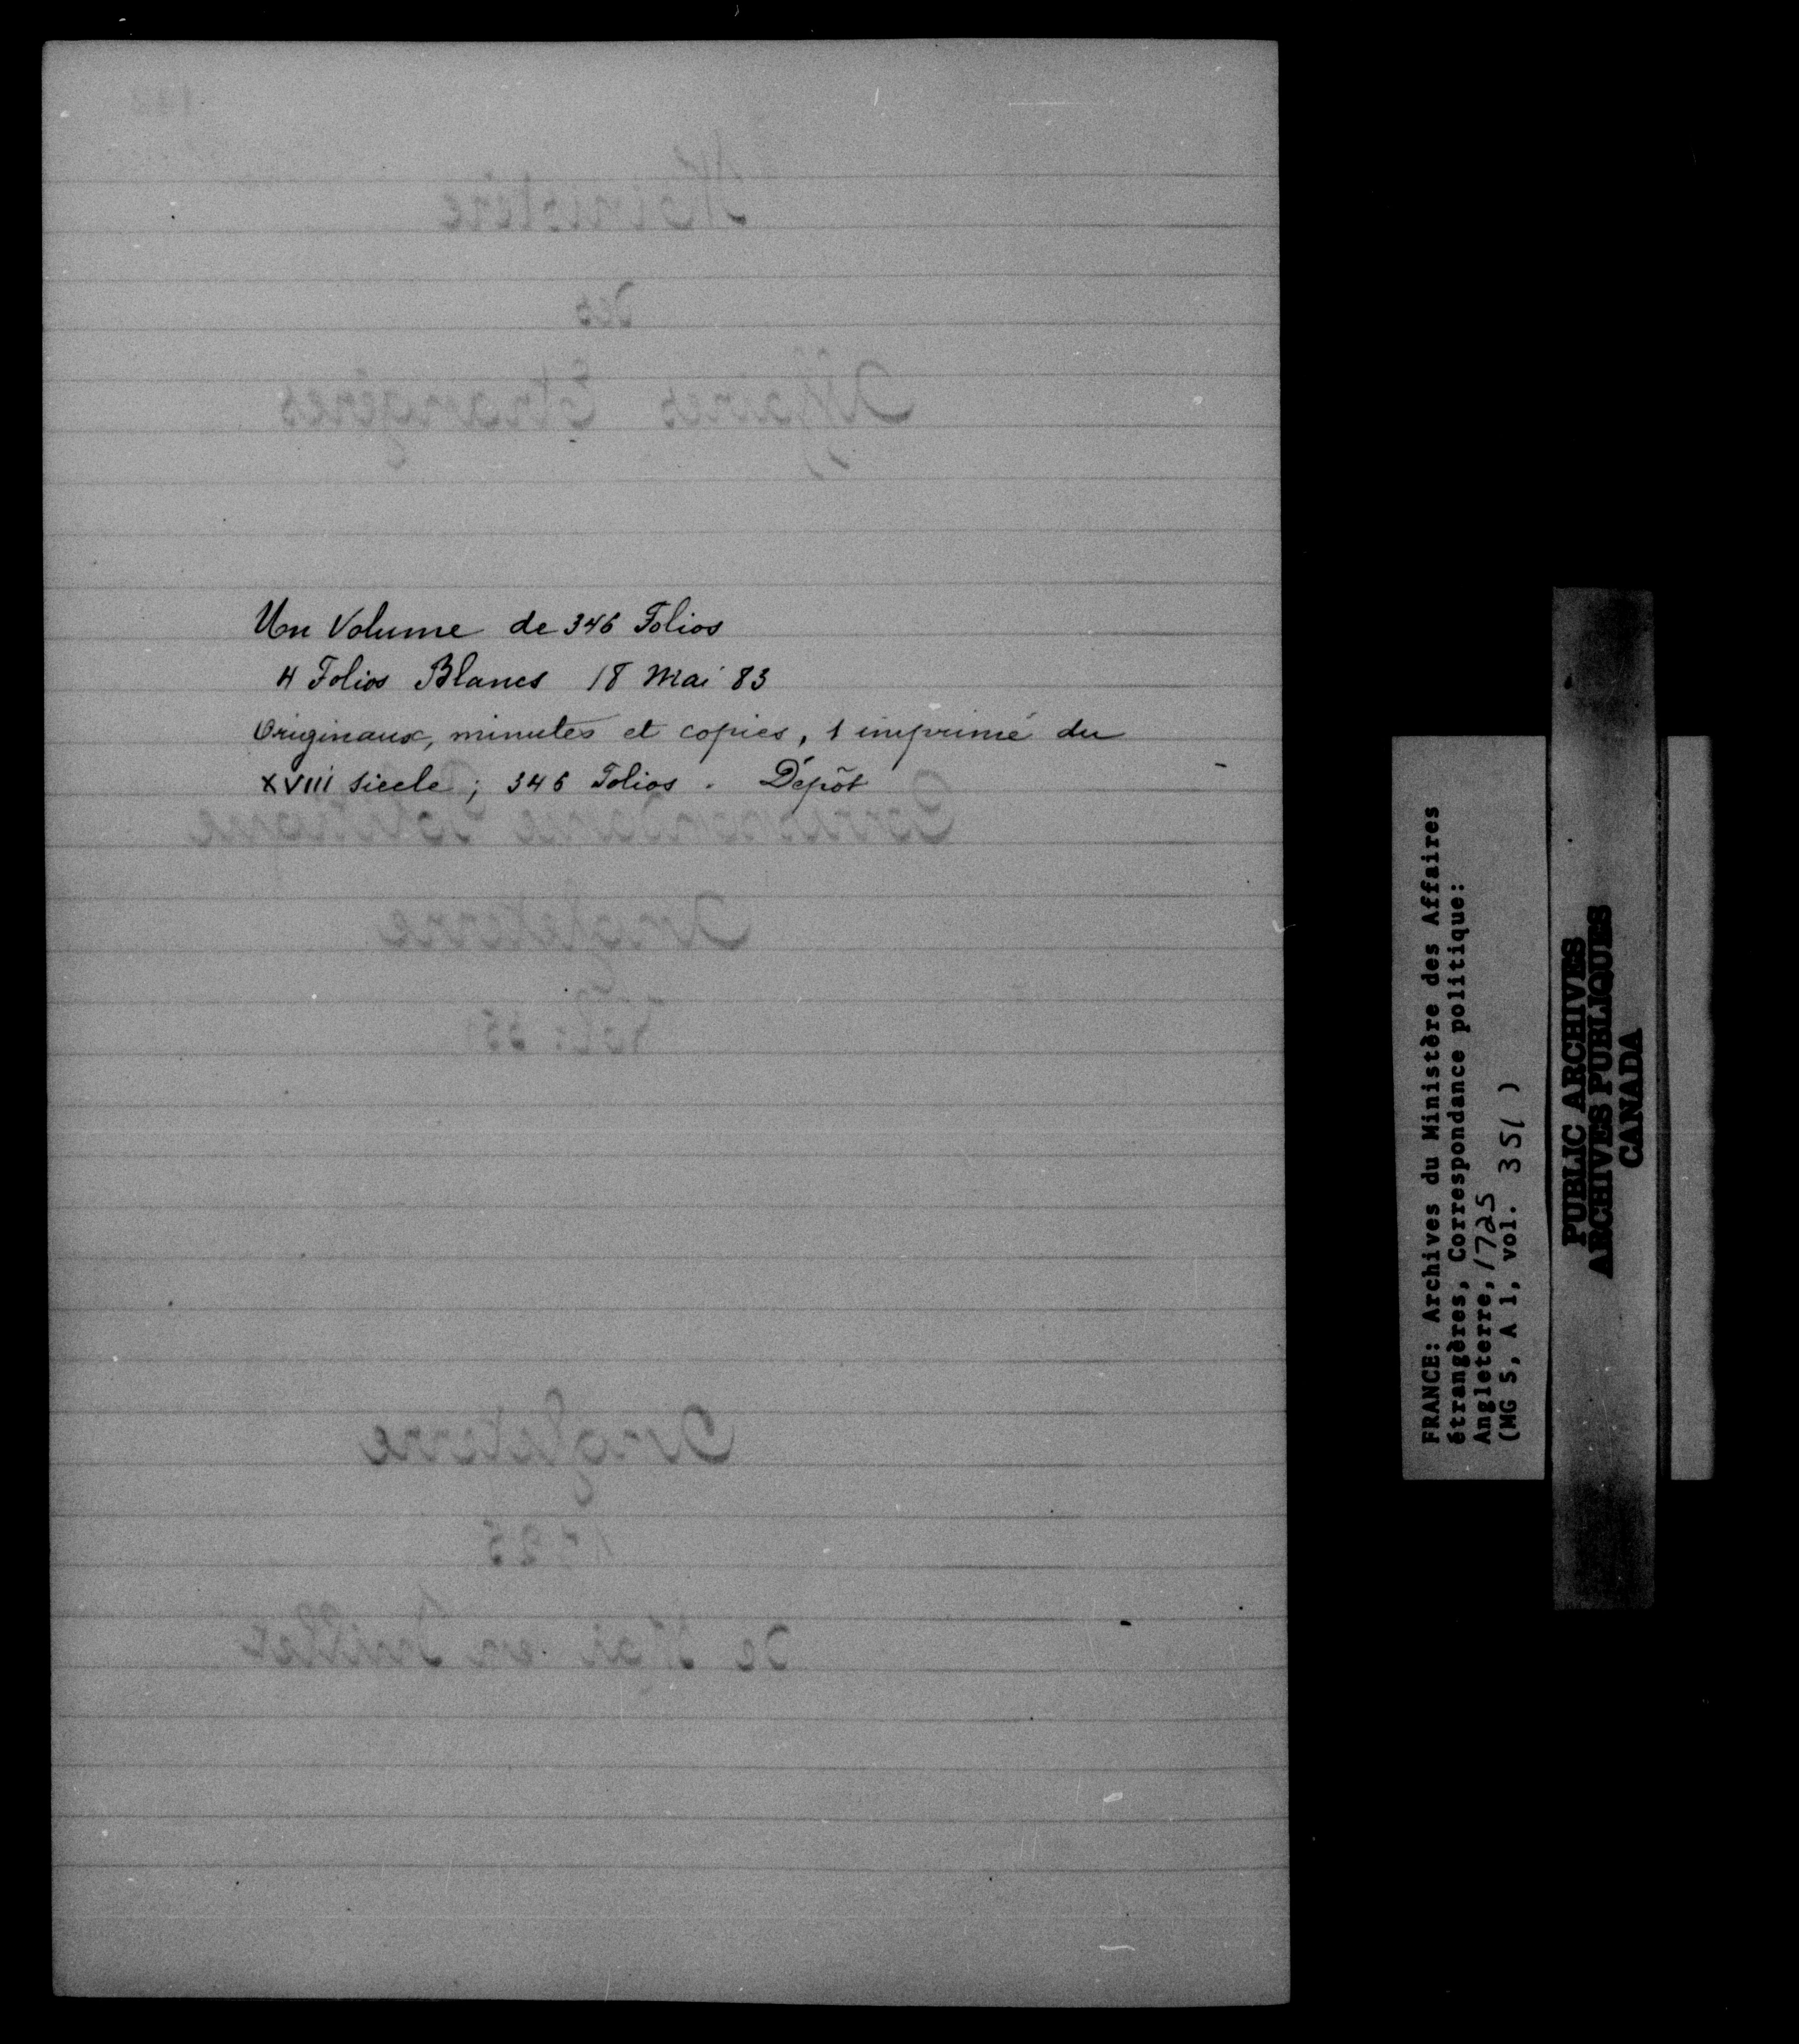 Un Volume de 346 Folios
4 Folios Blancs 18 Mai 83
Originaux, minutes et copies, 1 imprimé du
XVIII siecle ; 346 Folios. Dépôt
Ministère
des
Affaires Etrangères
Correspondance Politique
Angleterre
Vol: 351
Angleterre
1725
de Mai en Juillet
FRANCE: Archives du Ministère des Affaires
étrangères, Correspondance politique:
Angleterre, 1725
(MG 5, A 1, vol. 351 )
PUBLIC ARCHIVES
ARCHIVES PUBLIQUES
CANADA